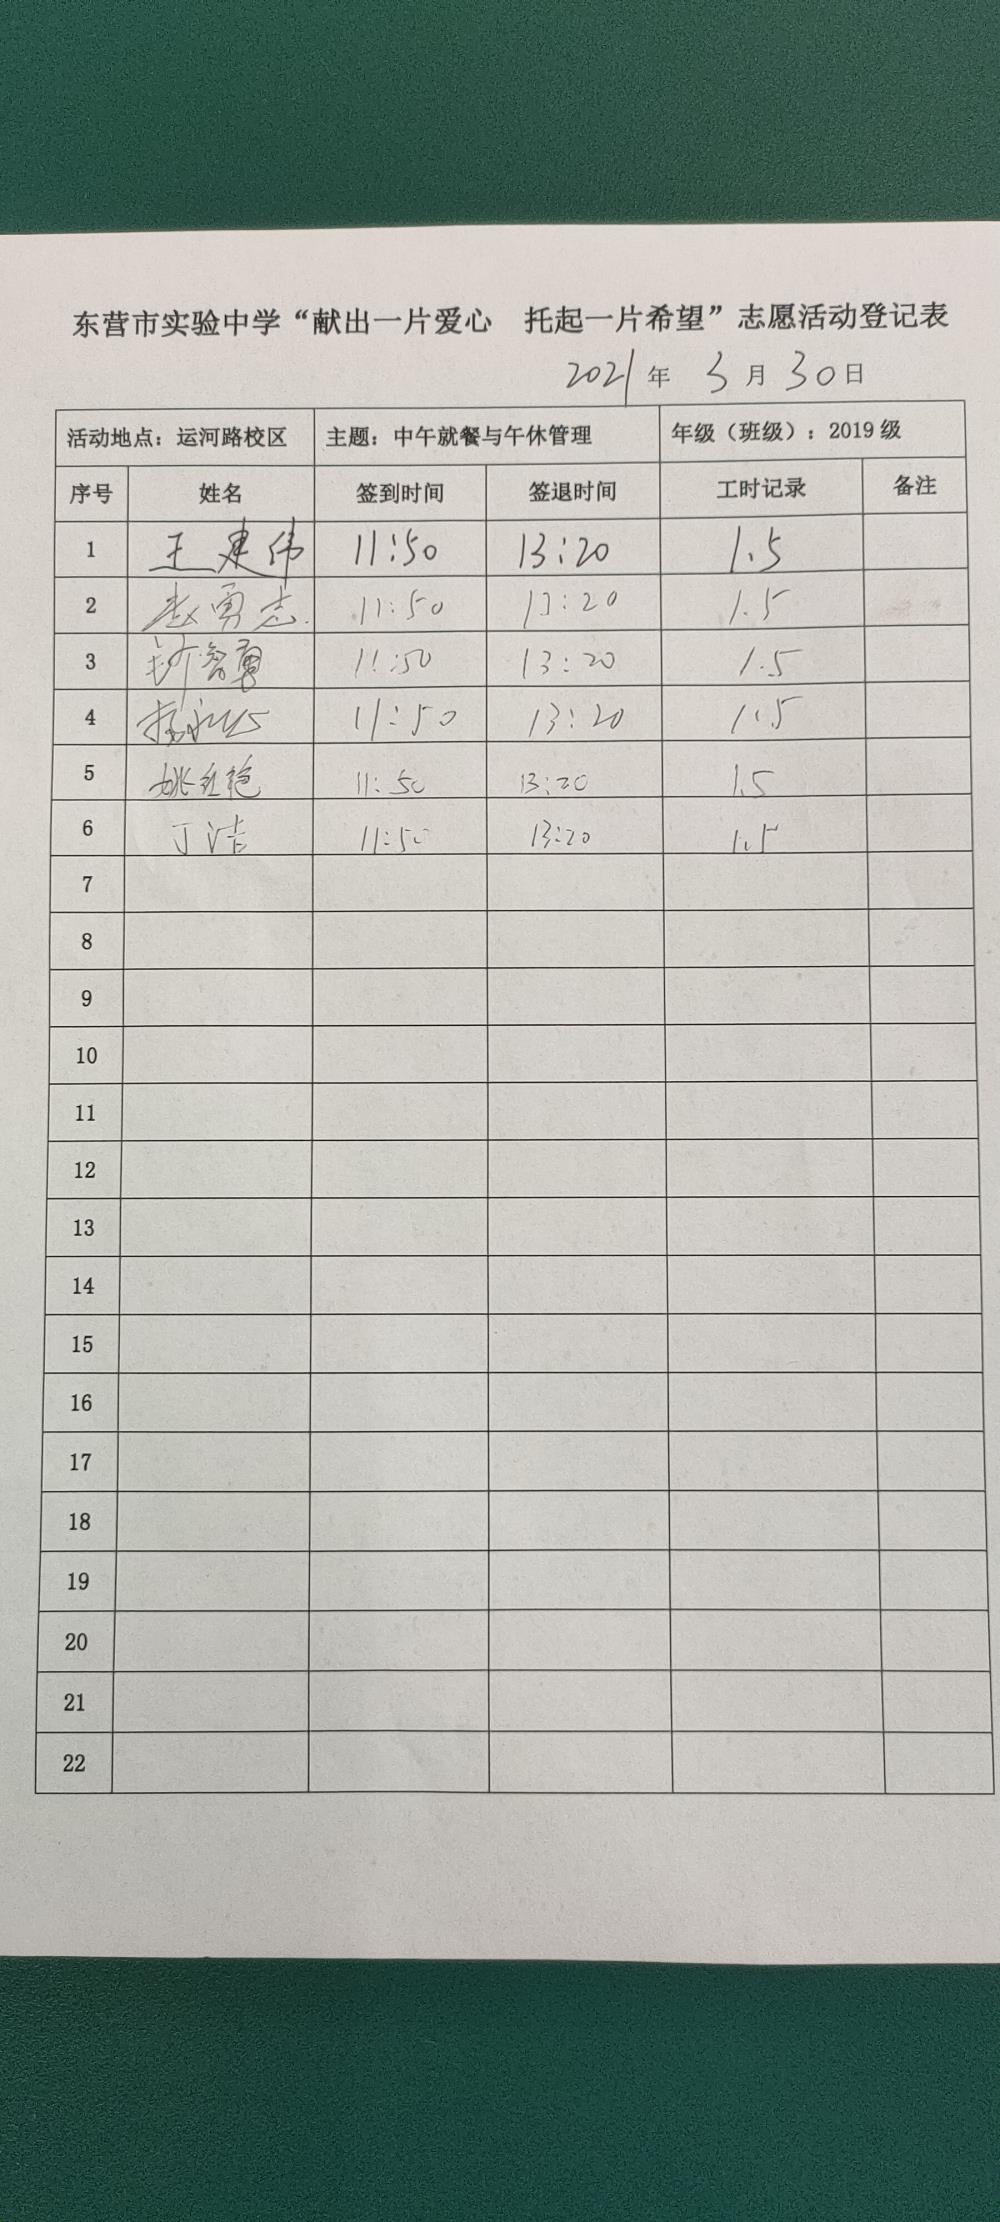 东营市实验中学“献出一片爱心 托起一片希望”志愿活动登记表
2021年 3月30日
活动地点：运河路校区 主题：中午就餐与午休管理 年级（班级）：2019级
序号 姓名 签到时间 签退时间 工时记录 备注
1 王建伟 11:50 13:20 1.5
2 赵勇志 11:50 13:20 1.5
3 智勇 11:50 13:20 1.5
4 11:50 13:20 1.5
5 姚红艳 11:50 13:20 1.5
6 丁洁 11:50 13:20 1.5
7
8
9
10
11
12
13
14
15
16
17
18
19
20
21
22